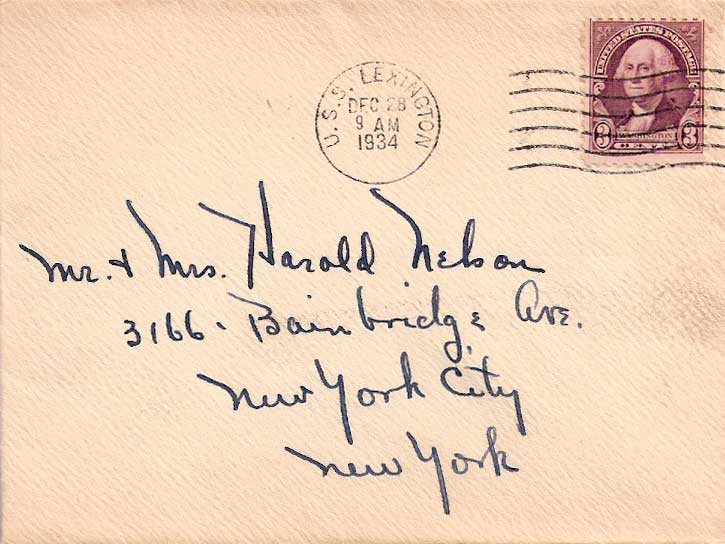 U.S.S. LEXINGTON
DEC 28
9 AM
1934
UNITED STATES POSTAGE
WASHINGTON
3 CENTS 3
Mr. & Mrs. Harold Nelson
3166. Bainbridge Ave.
New York City
New York